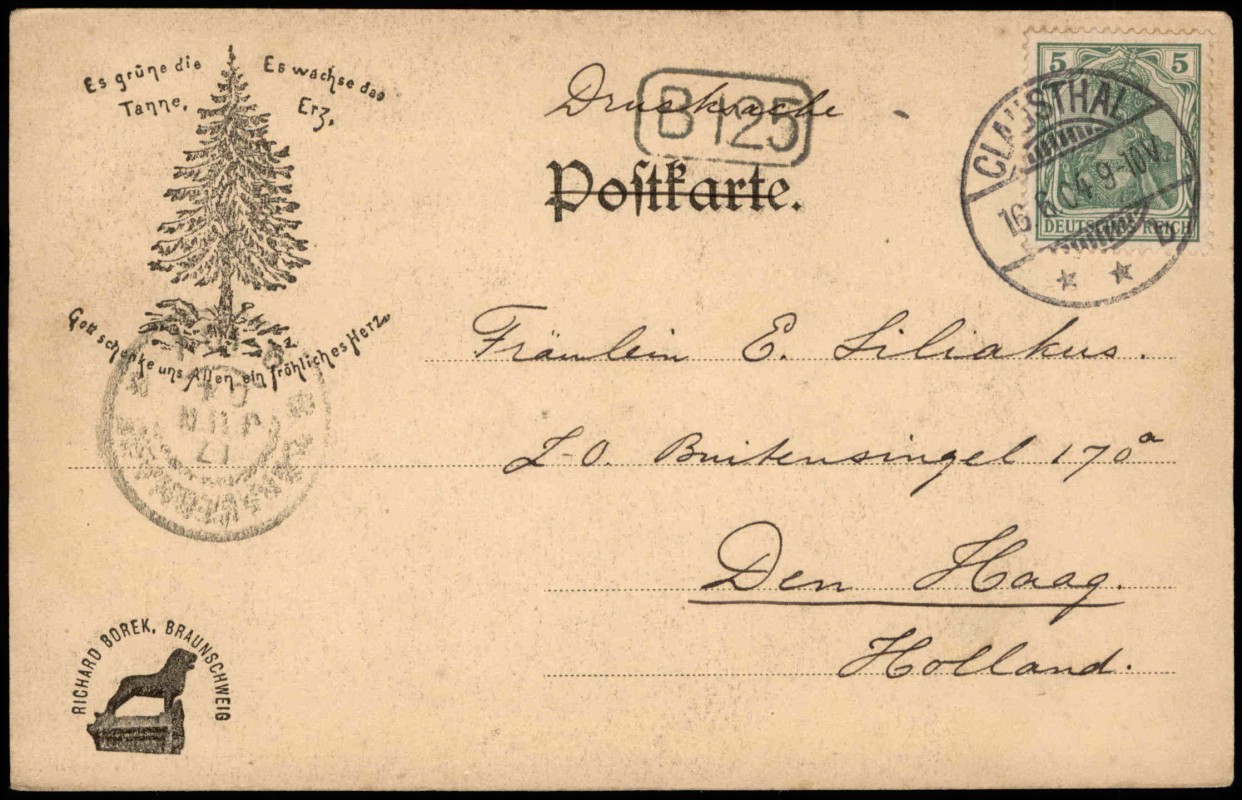 Es grüne die
Tanne.
Es wachse das
Erz.
Gott schenke uns Allen ein fröhliches Herz.
Drucksache
B 125
Postkarte.
5 5
DEUTSCHES REICH
CLAUSTHAL
16.6.04.9-10V.
b
Fräulein E. Siliakus.
Z-O. Buitensingel 170a
Den Haag.
Holland.
JUN
RICHARD BOREK, BRAUNSCHWEIG